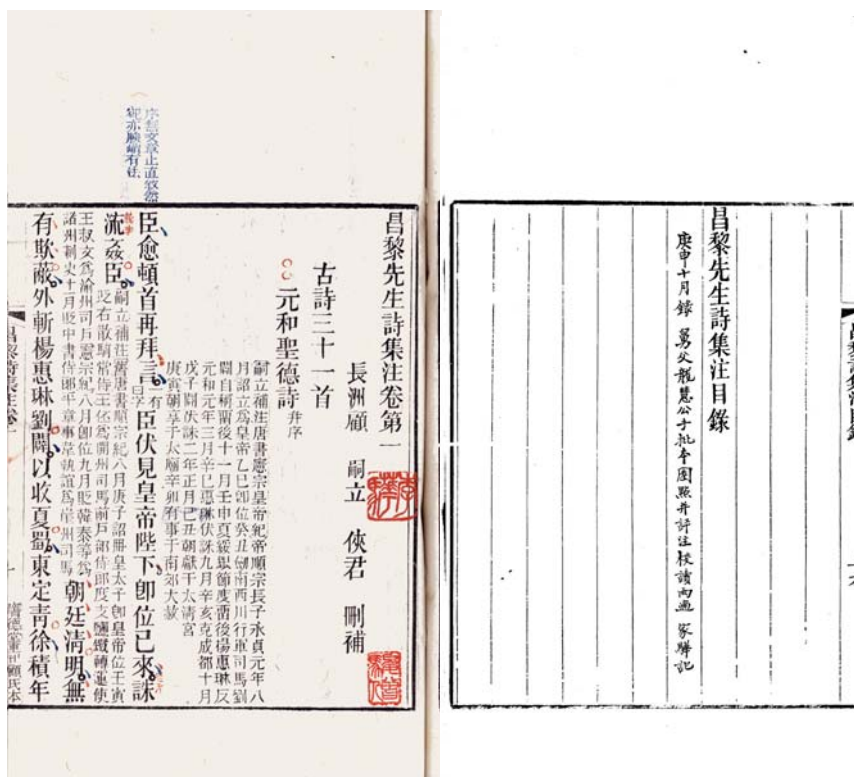 昌黎先生詩集注目錄
庚申十月錄 舅父龍慧公于批本圈點并評注校讀兩過 家驊記
昌黎先生詩集注卷第一
長洲顧 嗣立 俠君 刪補
古詩三十一首
元和聖德詩并序
嗣立補注唐書憲宗皇帝紀帝順宗長子永貞元年八
月詔立爲皇帝乙巳卽位癸丑劍南西川行軍司馬劉
闢自稱留後十一月壬申夏綏銀節度留後楊惠琳反
元和元年三月辛巳惠琳伏誅九月辛亥克成都十月
戊子闢伏誅二年正月己丑朝獻于太清宮
庚寅朝享于太廟辛卯有事于南郊大赦
臣愈頓首再拜言一有曰字臣伏見皇帝陛下卽位已來誅
流姦臣嗣立補注舊唐書順宗紀八月庚子詔冊皇太子卽皇帝位壬寅
貶右散騎常侍王伾爲開州司馬前戶部侍郎度支鹽鐵轉運使
王叔文爲渝州司戶憲宗紀八月卽位九月貶韓泰等爲
諸州刺史十一月貶中書侍郎平章事韋執誼爲崖州司馬朝廷清明無
有欺蔽外斬楊惠琳劉闢以收夏蜀東定青徐積年
序無文章止直敘然
昌黎詩集注卷一
膺德堂重刊顧氏本